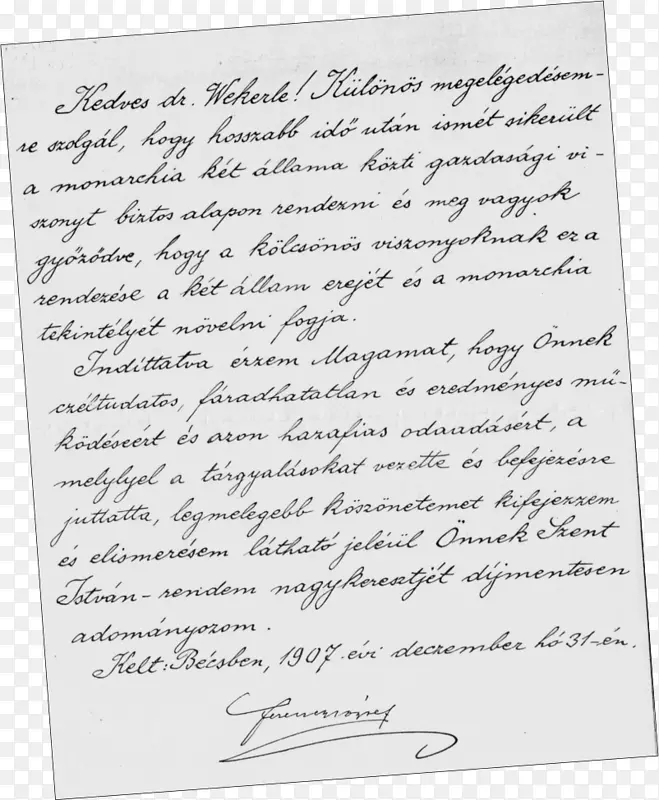 Kedves dr. Wekerle! Különös megelégedésem-
re szolgál, hogy hosszabb idő után ismét sikerült
a monarchia két állama közti gazdasági vi-
szonyt biztos alapon rendezni és meg vagyok
győződve, hogy a kölcsönös viszonyoknak ez a
rendezése a két állam erejét és a monarchia
tekintélyét növelni fogja.
Indíttatva érzem Magamat, hogy Önnek
czéltudatos, fáradhatatlan és eredményes mű-
ködéseért és azon hazafias odaadásért, a
melylyel a tárgyalásokat vezette és befejezésre
juttatta, legmelegebb köszönetemet kifejezzem
és elismerésem látható jeléül Önnek Szent
István-rendem nagykeresztjét díjmentesen
adományozom.
Kelt: Bécsben, 1907. évi deczember hó 31-én.
Ferencz József